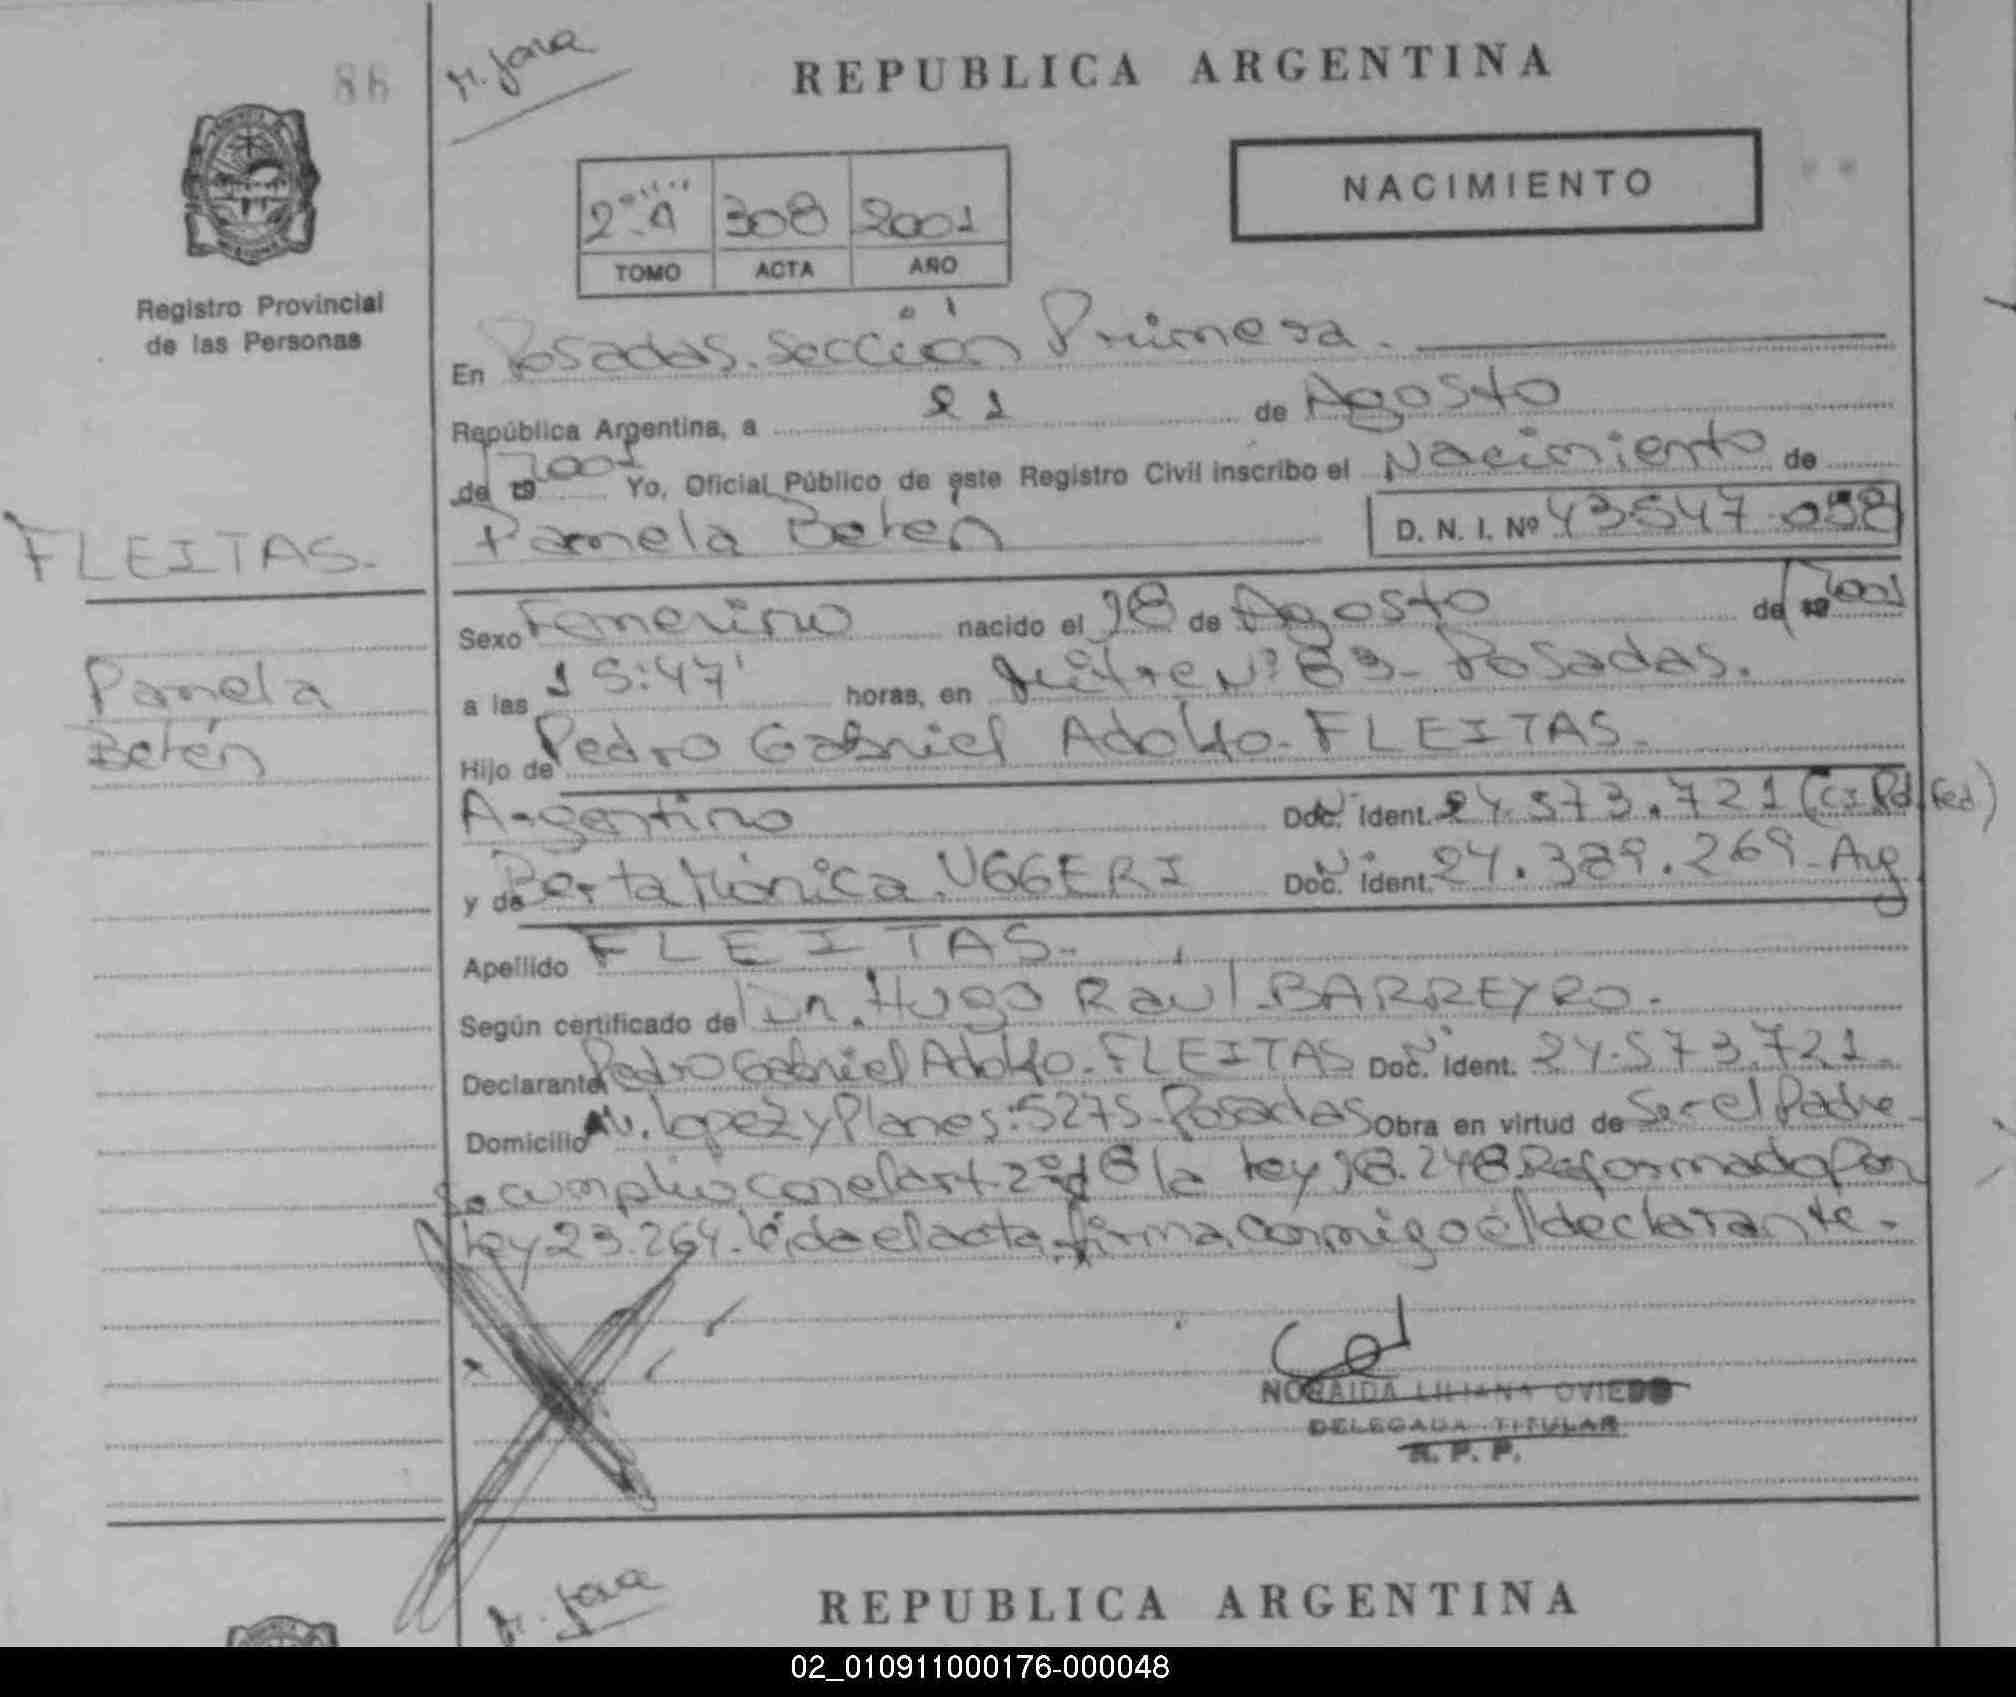 86
M. Jara
REPUBLICA ARGENTINA
NACIMIENTO
2º A 308 2001
TOMO ACTA AÑO
Registro Provincial
de las Personas
En Posadas. Sección Primera.
República Argentina, a 21 de Agosto
de 19 2001 Yo, Oficial Público de este Registro Civil inscribo el Nacimiento de
FLEITAS.
Pamela Belén D. N. I. Nº 43547.058
Sexo Femenino nacido el 18 de Agosto de 19 2001
Pamela
Belén
a las 15:47' horas, en Mitre Nº 83- Posadas.
Hijo de Pedro Gabriel Adolfo- FLEITAS-
Argentino Doc. Ident. 24.573.721 (CI Pol. Fed.)
y de Berta Mónica. UGGERI Doc. Ident. 24.389.269- Arg
Apellido FLEITAS-
Según certificado de Dr. Hugo Raúl BARREYRO-
Declarante Pedro Gabriel Adolfo- FLEITAS Doc. Ident. 24.573.721-
Domicilio Av. Lopez y Planes: 5275- Posadas Obra en virtud de Ser el Padre-
Se cumplió con el art. 2º la Ley 18.248 Reformado Por
Ley 23.264. Leída el acta firma conmigo él declarante-
NORAIDA LILIANA OVIEDO
DELEGADA TITULAR
R. P. P.
M. Jara
REPUBLICA ARGENTINA
02_010911000176-000048